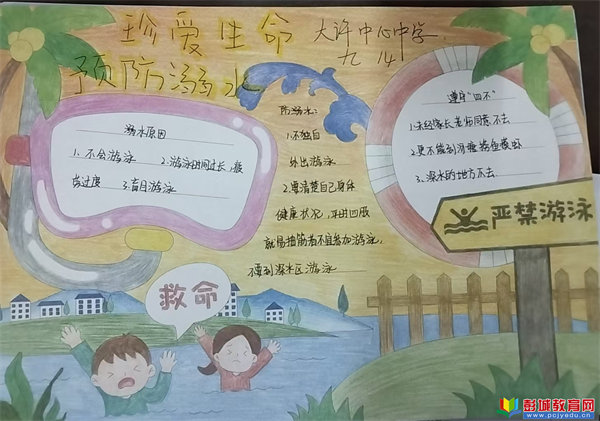 珍爱生命
预防溺水
大许中心中学
九.14
溺水原因
1.不会游泳 2.游泳时间过长,疲
劳过度 3.盲目游泳
防溺水:
1.不独自
外出游泳
2.要清楚自己身体
健康状况,平时四肢
就易抽筋者不宜参加游泳,
不要到深水区游泳
遵守“四不”
1.未经家长老师同意不去
2.更不能到河塘捞鱼摸虾
3.深水的地方不去
严禁游泳
救命
彭城教育网
www.pcjyedu.cn